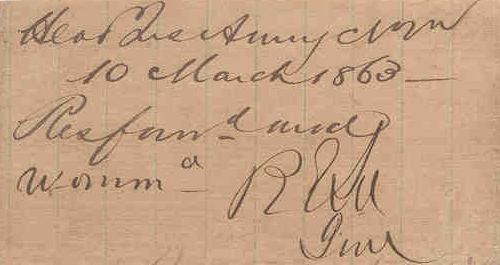 Head Qrs Army NVa
10 March 1863 —
Resp. forwd and
recommd R E Lee
Genl